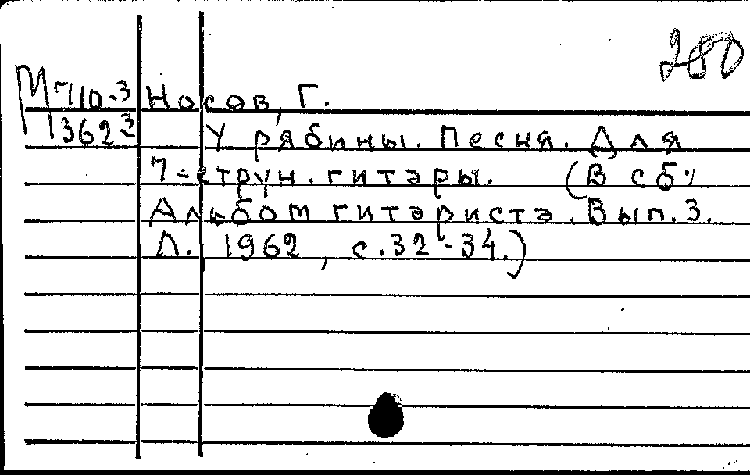 280
М 710-3 Носов, Г.
1362-3 У рябины. Песня. Для
7-струн. гитары. (В сб:
Альбом гитариста. Вып. 3.
Л., 1962, с. 32-34.)